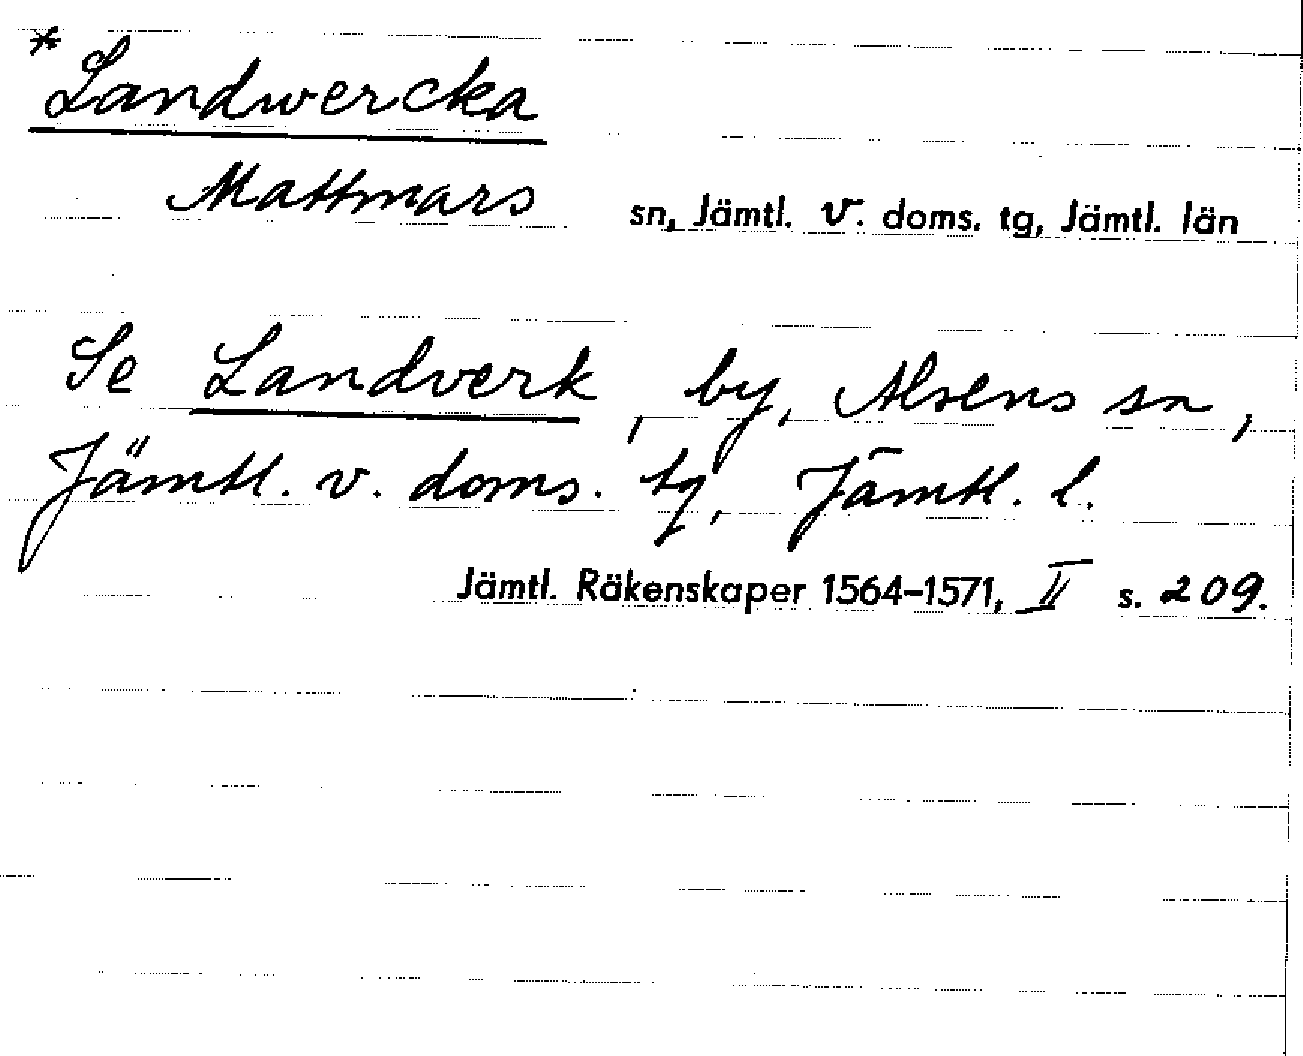 *Landwercka
Mattmars sn, Jämtl. v. doms. tg, Jämtl. län
Se Landverk, by, Alsens sn,
Jämtl. v. doms. tg, Jämtl. l.
Jämtl. Räkenskaper 1564–1571, II s. 209.